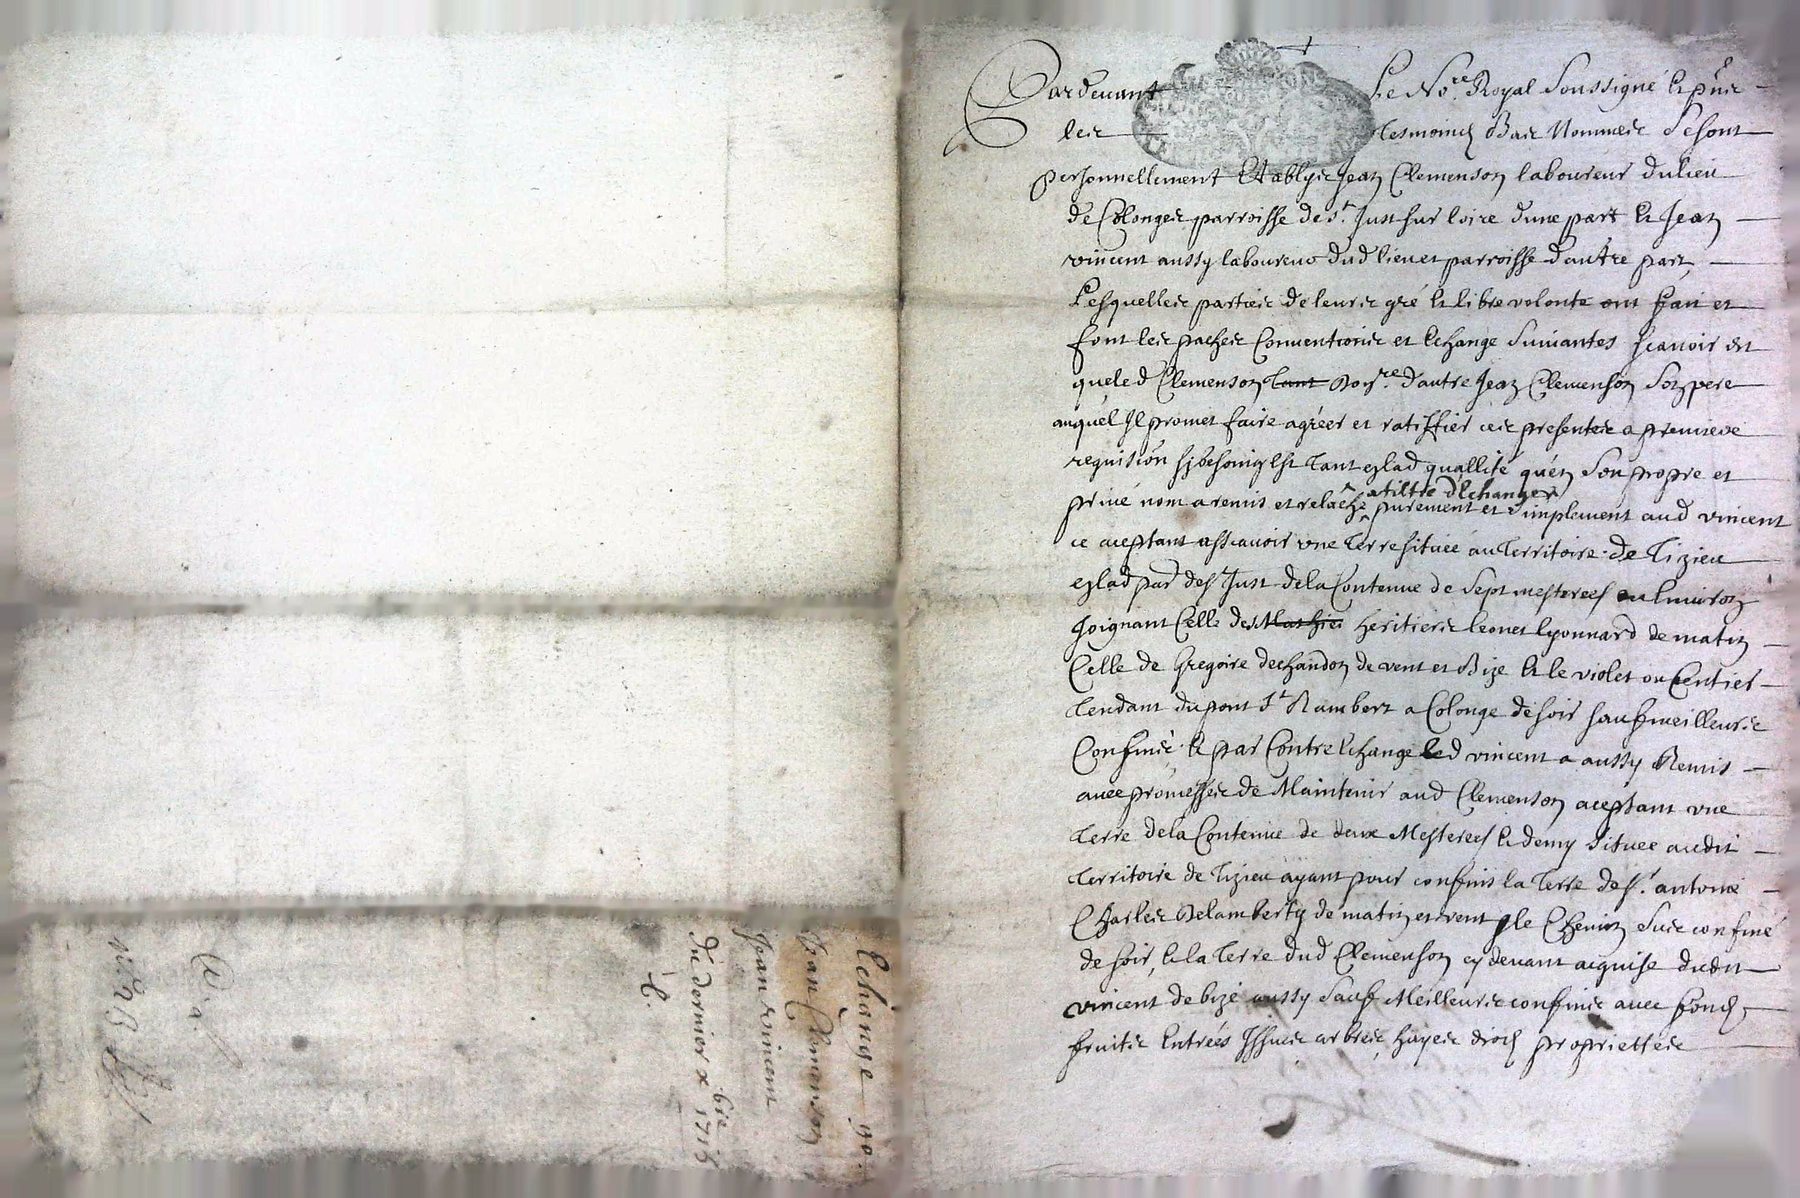 Pardevant Le No.re Royal Soussigné et pnr
les tesmoins Bas Nommes Se sont
personnellement Etablys Jean Clemenson laboureur dulieu
de Colonges parroisse de st Just sur loire d'une part et Jean
vincent aussy laboureur dud lieu et parroisse d'autre part
Lesquelles parties de leurs gré et libre volonte ont fait et
font les paches Conventions et Echange Suivantes scavoir est
que led Clemenson tant d'autre Jean Clemenson son pere
auquel Il promet faire agréer et ratiffier ces presentes a premiere
requision sy besoing Est tant en lad quallité qu'en Son propre et
privé nom a remis et relaché a tiltre d'Echange purement et simplement aud vincent
ce aceptant assavoir une terre située au territoire de Tizieu
en lad par de st Just de la Contenue de Sept mesterees ou Environ
Joignant Celle des Mathieu heritiers leonet lyonnard de matin
Celle de Gregoire dechandon de vent et Bize et le violet ou Centier
tendant du pont st Rambert a Colonge de soir sauf meilleurs
Confins et par Contre Echange led vincent a aussy Remis
avec promesses de Maintenir aud Clemenson aceptant une
terre de la Contenue de deux Mesterees et demy située audit
territoire de Tizieu ayant pour confins la terre de sr antoine
Charles Delamberty de matin et vent le Chemin Sus confiné
de soir, et la terre dud Clemenson cy devant acquise dudit
vincent de bize aussy Sauf Meilleurs confins avec fonds
fruits Entrées Issues arbres hayes droits proprietés
Echange po.
Jean Clemenson
Jean vincent
du dernier xbre 1715